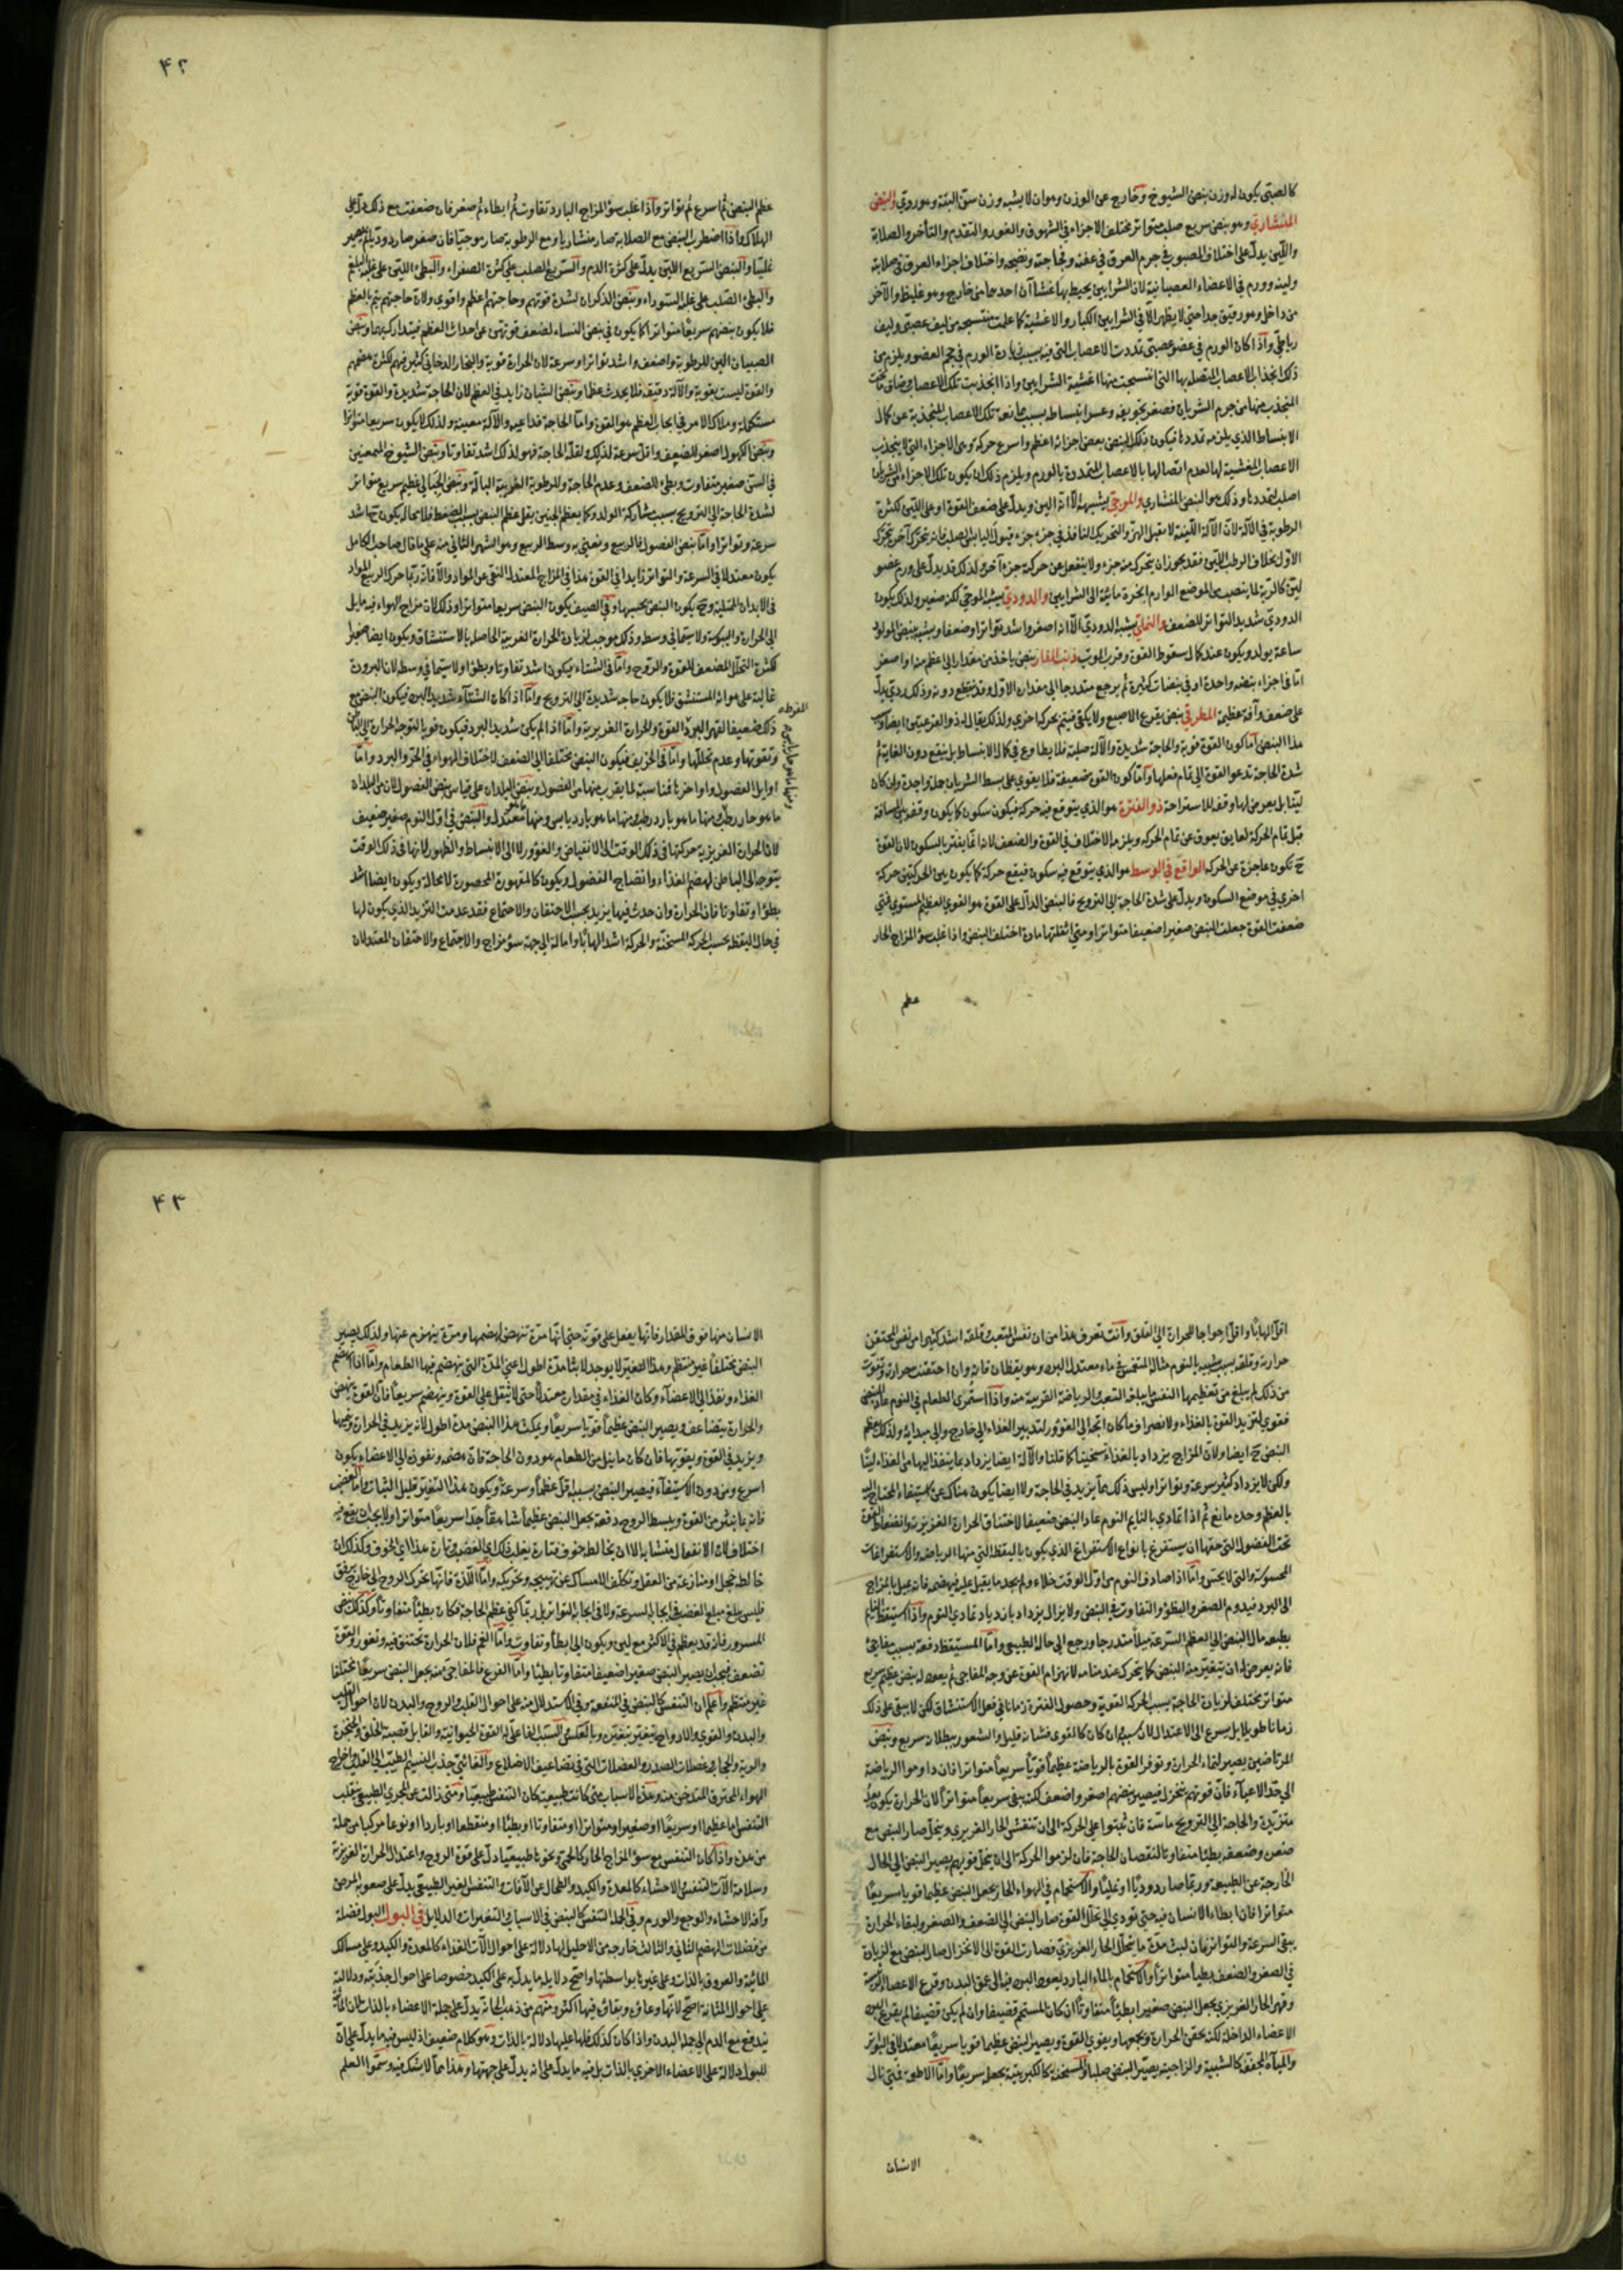 كالصبي يكون له وزن نبض الشيوخ وخارج عن الوزن وهو ان لا يشبه وزن سن البتة وهو ردي والنبض
المنشاري وهو نبض سريع صلب متواتر مختلف الاجزاء في الشهوق والغور والتقدم والتأخر والصلابة
واللين يدل على اختلاف المصبوب في جرم العرق في عفنه وفجاجته ونضجه واختلاف اجزاء العرق في صلابته
ولينه وورم في الاعضاء العصبانية لان الشرايين يحيط بها غشاآن احدهما من خارج وهو غليظ والآخر
من داخل وهو رقيق جدا حتى لا يظهر الا في الشرايين الكبار والاغشية كما علمت منتسجة من ليف عصبي وليف
رباطي واذا كان الورم في عضو عصبي تمددت الاعصاب التي فيه بسبب زيادة الورم في حجم العضو ويلزم من
ذلك انجذاب الاعصاب المتصلة بها التي انتسجت منها اغشية الشرايين واذا انجذبت تلك الاعصاب ضاق ما تحت
المنجذب منها من جرم الشريان فصغر تجويفه وعسر انبساطه بسبب ممانعة تلك الاعصاب المنجذبة عن كمال
الانبساط الذي يلزمه تمددها فيكون ذلك النبض بعض اجزائه اعظم واسرع حركة وهى الاجزاء التي لا ينجذب
الاعصاب المغشية لها لعدم اتصالها بالاعصاب المتمددة بالورم ويلزم ذلك ان يكون تلك الاجزاء من الشريان
اصلب لتمددها وذلك هو النبض المنشاري والموجي يشبهه الا انه الين ويدل على ضعف القوة او على اللين لكثرة
الرطوبة في الآلة لان الآلة اللينة لا تقبل الهز والتحريك النافذ في جزء جزء قبول اليابس الصلب فانه يتحرك آخره بتحرك
الاول بخلاف الرطب اللين فقد يجوز ان يتحرك منه جزء ولا ينفعل عن حركته جزء آخر ولذلك قد يدل على ورم عضو
لين كالرية لما ينصب من الموضع الوارم ابخرة مائية الى الشرايين والدودي يشبه الموجي لكنه صغير ولذلك يكون
الدودي شديد التواتر للضعف والنملي يشبه الدودي الا انه اصغر واشد تواترا وضعفا ويشبه بنبض المولود
ساعة يولد ويكون عند كمال سقوط القوة وقرب الموت ذنب الفار نبض ياخذ من مقدار الى اعظم منه او اصغر
اما في اجزاء نبضة واحدة او في نبضات كثيرة ثم يرجع متدرجا الى مقداره الاول وقد ينقطع دونه وذلك ردي يدل
على ضعف وآفة عظيمة المطرقي نبض يقرع الاصبع ولا يكفي فيتم بحركة اخرى ولذلك يقال له ذو القرعتين ايضا وسبب
هذا النبض اما كون القوة قوية والحاجة شديدة والآلة صلبة فلا يطاوع في كمال الانبساط بل يقع دون الغاية ثم
شدة الحاجة تدعو القوة الى تمام فعلها واما كون القوة ضعيفة فلا يقوى على بسط الشريان جملة واحدة وان كان
لينا بل يعرض لها وقفة للاستراحة ذو الفترة هو الذي يتوقع فيه حركة فيكون سكون كما يكون وقفة في المسافة
قبل تمام الحركة لعايق يعوق عن تمام الحركة ويلزمه الاختلاف في القوة والضعف لانه انما يفتر بالسكون لان القوة
ح تكون عاجزة عن الحركة الواقع في الوسط هو الذي يتوقع فيه سكون فيقع حركة كما يكون بين الحركتين حركة
اخرى في موضع السكون ويدل على شدة الحاجة الى الترويح فالنبض الدال على القوة هو القوي العظيم المستوي فمتى
ضعفت القوة جعلت النبض صغيرا ضعيفا متواترا ومتى اثقلتها مادة اختلف النبض واذا غلب سوء المزاج الحار
عظم
۴۲
عظم النبض ثم اسرع ثم تواتر واذا غلب سوء المزاج البارد تفاوت ثم ابطاء ثم صغر فان ضعفت مع ذلك دل على
الهلاك واذا اضطرب النبض مع الصلابة صار منشاريا ومع الرطوبة صار موجيا فان صغر صار دوديا ثم يصير
غليا والنبض السريع اللين يدل على كثرة الدم والسريع الصلب على كثرة الصفراء والبطئ اللين على غلبة البلغم
والبطئ الصلب على غلبة السوداء ونبض الذكران لشدة قوتهم وحاجتهم اعظم واقوى ولان حاجتهم يتم بالعظم
فلا يكون نبضهم سريعا متواترا كما يكون في نبض النساء لضعف قوتهن عن احداث العظم فيتدارك بهما ونبض
الصبيان الين للرطوبة واضعف واشد تواترا وسرعة لان الحرارة قوية والبخار الدخاني كثير فيهم لكثرة هضمهم
والقوة ليست بقوية والآلة دقيقة فلا يحدث عظما ونبض الشبان زايد في العظم لان الحاجة شديدة والقوة قوية
مستكملة وملاك الامر في ايجاب العظم هو القوة واما الحاجة فداعية والآلة معينة ولذلك لا يكون سريعا متواترا
ونبض الكهول اصغر للضعف واقل سرعة لذلك ولقلة الحاجة فهو لذلك اشد تفاوتا ونبض الشيوخ الممعنين
في السن صغير متفاوت وبطئ للضعف وعدم الحاجة وللرطوبة الغريبة البالة ونبض الحبالى عظيم سريع متواتر
لشدة الحاجة الى الترويح بسبب مشاركة الولد وكما يعظم الجنين يقل عظم النبض بسبب الضغط فلا محالة يكون ح اشد
سرعة وتواترا واما نبض الفصول فالربيع ونعني به وسط الربيع وهو الشهر الثاني منه على ما قال صاحب الكامل
يكون معتدلا في السرعة والتواتر زايدا في القوة هذا في المزاج المعتدل النقي عن المواد والا فانه ربما حرك الربيع المواد
في الابدان الممتلية وح يكون النبض بحسبها وفي الصيف يكون النبض سريعا متواترا وذلك لان مزاج الهواء فيه مايل
الى الحرارة واليبوسة ولا سيما في وسطه وذلك موجب لزيادة الحرارة الغريبة الحاصلة بالاستنشاق ويكون ايضا صغيرا
لكثرة التحلل المضعف للقوة والروح واما في الشتاء فيكون اشد تفاوتا وبطؤا ولا سيما في وسطه لان البرودة
غالبة على هواء المستنشق فلا يكون حاجة شديدة الى الترويح واما اذا كان الشتاء شديد البرد فيكون النبض مع
ذلك ضعيفا لقهر البرد القوة والحرارة الغريزية واما اذا لم يكن شديد البرد فيكون قويا لتوجه الحرارة الى الباطن
وتقويتها وعدم تحللها واما في الخريف فيكون النبض مختلفا الى الضعف لاختلاف الهواء في الحر والبرد واما
اوايل الفصول واواخرها فمناسبة لما يقرب منها من الفصول ونبض البلدان على قياس نبض الفصول لان من البلدان
ما هو حار رطب ومنها ما هو بارد رطب ومنها ما هو بارد يابس ومنها ما هو معتدل والنبض في اول النوم صغير ضعيف
لان الحرارة الغريزية حركتها في ذلك الوقت الى الانقباض والغور لا الى الانبساط والظهور لانها في ذلك الوقت
يتوجه الى الباطن لهضم الغذاء وانضاج الفضول ويكون كالمقهورة المحصورة لا محالة ويكون ايضا اشد
بطؤا وتفاوتا فان الحرارة وان حدث فيها تزيد بحسب الاحتقان والاجتماع فقد عدمت التزيد الذي يكون لها
في حال اليقظة بحسب الحركة المسخنة والحركة اشد الهابا وامالة الى جهة سوء مزاج والاجتماع والاحتقان المعتدلان
المفرطة
ومنها ما هو حار يابس
اقل الهابا واقل احواجا للحرارة الى القلق وانت تعرف هذا من ان نفس المتعب وقلقه اشد كثيرا من نفس المحتقن
حرارته وقلقه بسبب شبيه بالنوم مثاله المنغمس في ماء معتدل البرد وهو يقظان فانه وان احتقنت حرارته وتقوت
من ذلك لم يبلغ من تعظيمها النفس ما يبلغه التعب والرياضة القريبة منه واذا استمري الطعام في النوم عاد النبض
فقوي لتزيد القوة بالغذاء ولانصراف ما كان اتجه الى الغور لتدبير الغذاء الى خارج والى مبدائه ولذلك يعظم
النبض ح ايضا ولان المزاج يزداد بالغذاء تسخينا كما قلنا والآلة ايضا يزداد بما ينفذ اليها من الغذاء لينا
ولكن لا يزداد كثير سرعة وتواتر اذ ليس ذلك مما يزيد في الحاجة ولا ايضا يكون هناك عن استيفاء المحتاج اليه
بالعظم وحده مانع ثم اذا تمادى بالنايم النوم عاد النبض ضعيفا لاختناق الحرارة الغريزية وانضغاط القوة
تحت الفضول التي حقها ان يستفرغ بانواع الاستفراغ الذي يكون باليقظة التي منها الرياضة والاستفراغات
المحسوسة والتي لا يحس واما اذا صادف النوم من اول الوقت خلاء ولم يجد ما يقبل عليه فيهضمه فانه يميل بالمزاج
الى البرد فيدوم الصغر والبطؤ والتفاوت في النبض ولا يزال يزداد بازدياد تمادي النوم واذا استيقظ النايم
بطبعه مال النبض الى العظم والسرعة ميلا متدرجا ورجع الى حاله الطبيعي واما المستيقظ دفعة بسبب مفاجئ
فانه يعرض له ان يتغير منه النبض كما يتحرك عند منامه لانهزام القوة عن وجه المفاجي ثم يعود له نبض عظيم سريع
متواتر مختلف لزيادة الحاجة بسبب الحركة القوية وحصول الفترة زمانا في فعل الاستنشاق لكن لا يبقى على ذلك
زمانا طويلا بل يسرع الى الاعتدال لان سببه وان كان كالقوى فثباته قليل والشعور ببطلانه سريع ونبض
المرتاضين يصير لنماء الحرارة وتوفر القوة بالرياضة عظيما قويا سريعا متواترا فان داوموا الرياضة
الى حد الاعياء فان قوتهم ينخزل فيصير نبضهم اصغر واضعف لكنه يبقى سريعا متواترا لان الحرارة يكون بعد
متزيدة والحاجة الى الترويح ماسة فان ثبتوا على الحركة الى ان تنفش الحار الغريزي ويتحلل صار النبض مع
صغره وضعفه بطيئا متفاوتا لنقصان الحاجة فان لزموا الحركة الى ان ينحل قوتهم يصير النبض الى الحال
الخارجة عن الطبيعة وربما صار دوديا او غليا والاستحمام في الهواء الحار يجعل النبض عظيما قويا سريعا
متواترا فان ابطاء الانسان فيه حتى يؤدي الى تحلل القوة صار النبض الى الضعف والصغر ولبقاء الحرارة
يبقى السرعة والتواتر فان لبث مدة ما يتحلل الحار الغريزي فصارت القوة الى الانخزال صار النبض مع الزيادة
في الصغر والضعف بطيئا متواترا والاستحمام بالماء البارد يغوص البرد فيه الى عمق البدن وقرع الاعضاء الرئيسة
وقهر الحار الغريزي يجعل النبض صغيرا بطيئا متفاوتا ان كان المستحم قضيفا وان لم يكن قضيفا لم يقرع البرد
الاعضاء الداخلة لكنه يحقن الحرارة ويجمعها ويقوى القوة ويصير النبض عظيما قويا سريعا معتدلا في التواتر
والمياه المجففة كالشبية والزاجية يصير النبض صلبا والمسخنة كالكبريتية يجعله سريعا واما الاطعمة فمتى نال
الانسان
۴۳
الانسان منها فوق المقدار فانها يفعل على قوته حتى انها مرة تنهض لهضمها ومرة ينهزم عنها ولذلك يصير
النبض مختلفا غير منتظم وهذا التغير لا يوجد لابثا مدة اطول اعني المدة التي ينهضم فيها الطعام واما اذا انهضم
الغذاء ونفذ الى الاعضاء وكان الغذاء في مقدار معتدل حتى لا يثقل على القوة وينهضم سريعا فان القوة ينهض
والحرارة يتضاعف ويصير النبض عظيما قويا سريعا ويمكث هذا النبض مدة اطول لانه يزيد في الحرارة وينميها
ويزيد في القوة ويقويها فان كان ما ينيل من الطعام هو دون الحاجة فان هضمه ونفوذه الى الاعضاء يكون
اسرع ومن دون الاستيفاء فيصير النبض بسببه اقل عظما وسرعة ويكون هذا التغير قليل الثبات واما الغضب
فانه بما يثير من القوة ويبسط الروح دفعة يجعل النبض عظيما شاهقا جدا سريعا متواترا ولا يجب ان يقع فيه
اختلاف لان الانفعال متشابه الا ان يخالطه خوف فتارة يغلب ذلك اي الغضب وتارة هذا اي الخوف وكذلك ان
خالطه خجل او منازعة من العقل وتكلف الامساك عن تهييجه وتحريكه واما اللذة فانها تحرك الروح الى خارج برفق
فليس يبلغ مبلغ الغضب في ايجابه السرعة ولا في ايجابه التواتر بل ربما كفى عظمه الحاجة فكان بطيئا متفاوتا وكذلك نبض
المسرور فانه قد يعظم في الاكثر مع لين ويكون الى ابطأ وتفاوت واما الغم فلان الحرارة تختنق فيه وتغور والقوة
تضعف فيجب ان يصير النبض صغيرا ضعيفا متفاوتا بطيئا واما الفزع فالمفاجي منه يجعل النبض سريعا مختلفا
غير منتظم واعلم ان التنفس كالنبض في المنفعة وفي الاستدلال منه على احوال القلب والروح والبدن لان احوال القلب
والبدن والقوى والارواح يتغير بتغيره وبالعكس والسبب الفاعلي له القوة الحيوانية والقابل قصبة الحلق والحنجرة
والرية والحجاب وعضلات الصدر والعضلات التي في تضاعيف الاضلاع والغائي جذب النسيم الطيب الى القلب واخراج
الهواء المحترق المتدخن منه وهذه الاسباب متى كانت طبيعية كان التنفس طبيعيا ومتى زالت عن المجرى الطبيعي ينقلب
التنفس اما عظيما او سريعا او صغيرا او متواترا او متفاوتا او بطيئا او منقطعا او باردا او نوعا مركبا من جملة
من هذه واذا كان التنفس مع سوء المزاج الحار كالحمى ونحوها طبيعيا دل على قوة الروح واعتدال الحرارة الغريزة
وسلامة آلات التنفس والاحشاء كالمعدة والكبد والطحال عن الآفات والتنفس الغير الطبيعي يدل على صعوبة المرض
وآفة الاحشاء والوجع والورم وفي الجملة التنفس كالنبض في الاسباب والتغيرات والدلايل في البول البول فضلة
من فضلات الهضم الثاني والثالث خارجة من الاحليل لها دلالة على احوال آلات الغذاء كالمعدة والكبد وعلى مسالك
المائية والعروق بالذات وعلى غيرها بواسطتها واصح دلايله ما يدل به على الكبد خصوصا على احوال حدبته ودلالته
على احوال المثانة اصح لانها وعاؤه وبقاؤه فيها اكثر ومنهم من ذهب الى انه يدل على جملة الاعضاء بالذات لان المائية
يندفع مع الدم الى جملة البدن واذا كان كذلك فلها عليها دلالة بالذات وهو كلام ضعيف اذ ليس فيه ما يدل على ان
للبول دلالة على الاعضاء الاخرى بالذات بل فيه ما يدل على انه يدل على جهتها وهذا مما لا يشك فيه وسموا العلم